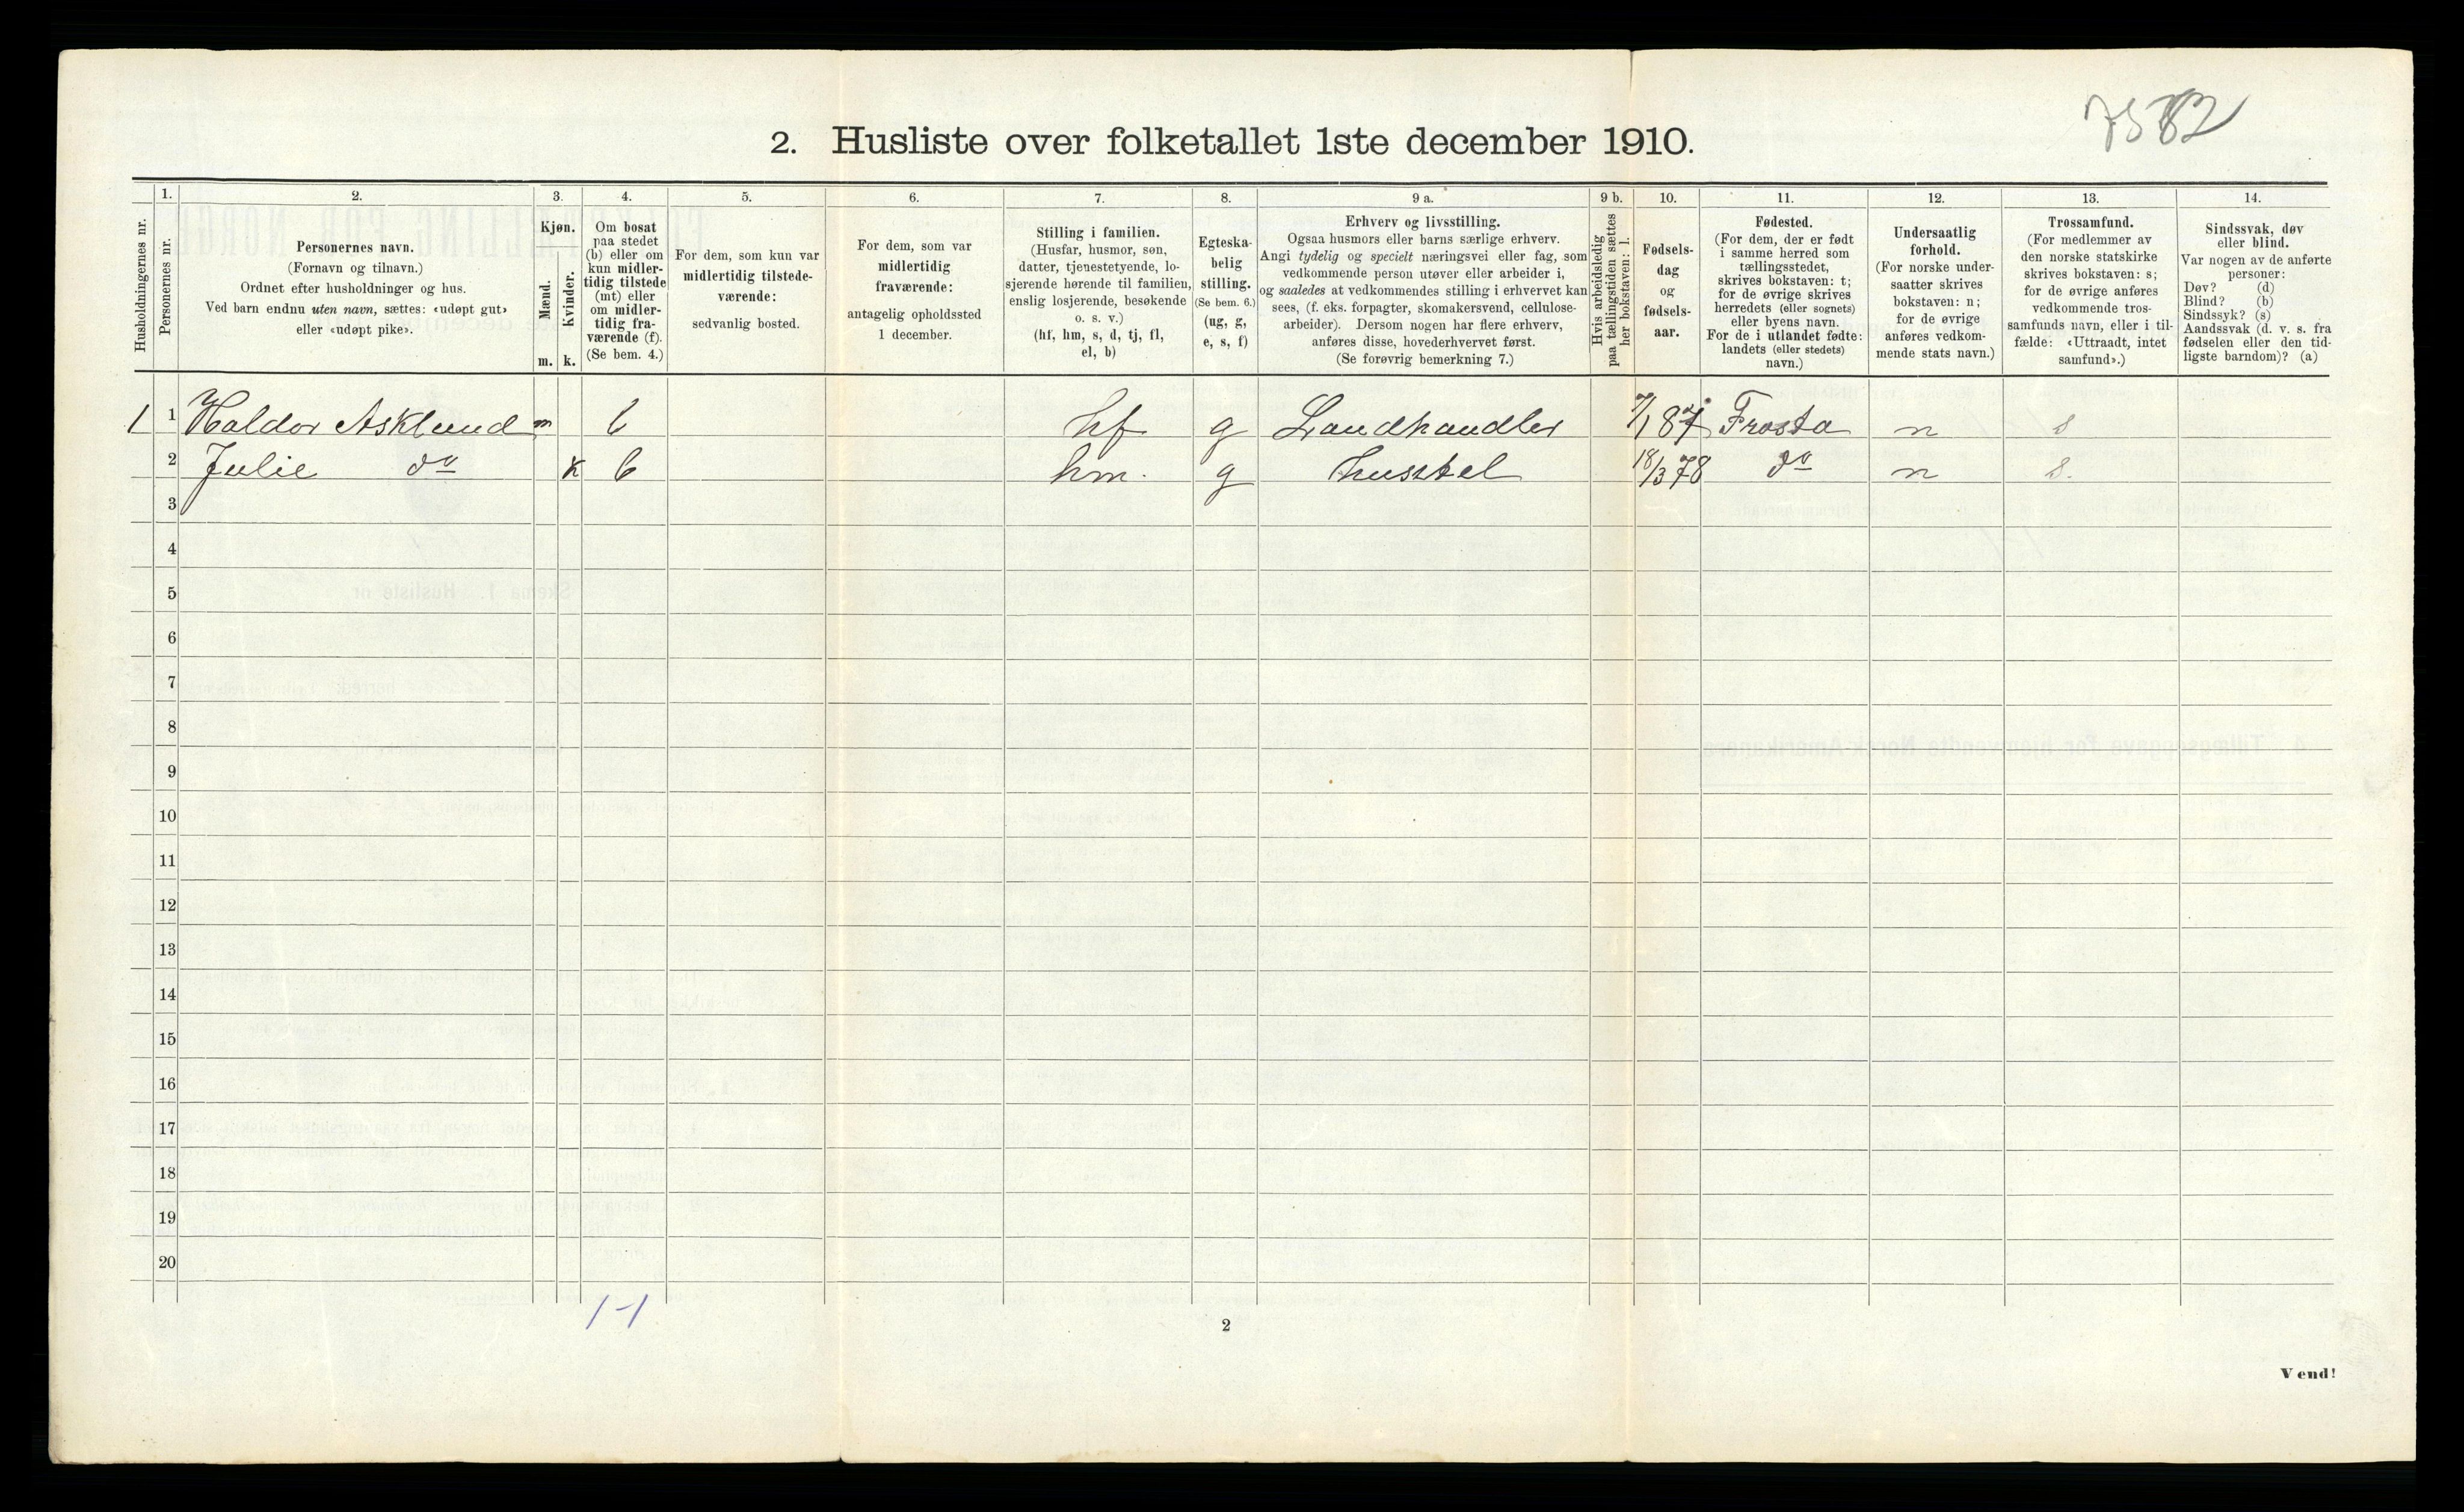 2. Husliste over folketallet 1ste december 1910.
Husholdningernes nr.
1.
Personernes nr.
2.
Personernes navn.
(Fornavn og tilnavn.)
Ordnet efter husholdninger og hus.
Ved barn endnu uten navn, sættes: «udøpt gut»
eller «udøpt pike».
3.
Kjøn.
Mænd.
Kvinder.
m. k.
4.
Om bosat
paa stedet
(b) eller om
kun midler-
tidig tilstede
(mt) eller
om midler-
tidig fra-
værende (f).
(Se bem. 4.)
5.
For dem, som kun var
midlertidig tilstede-
værende:
sedvanlig bosted.
6.
For dem, som var
midlertidig
fraværende:
antagelig opholdssted
1 december.
7.
Stilling i familien.
(Husfar, husmor, søn,
datter, tjenestetyende, lo-
sjerende hørende til familien,
enslig losjerende, besøkende
o. s. v.)
(hf, hm, s, d, tj, fl,
el, b)
8.
Egteska-
belig
stilling.
(Se bem. 6.)
(ug, g,
e, s, f)
9 a.
Erhverv og livsstilling.
Ogsaa husmors eller barns særlige erhverv.
Angi tydelig og specielt næringsvei eller fag, som
vedkommende person utøver eller arbeider i,
og saaledes at vedkommendes stilling i erhvervet kan
sees, (f. eks. forpagter, skomakersvend, cellulose-
arbeider). Dersom nogen har flere erhverv,
anføres disse, hovederhvervet først.
(Se forøvrig bemerkning 7.)
9 b.
Hvis arbeidsledig
paa tællingstiden sættes
her bokstaven: l.
10.
Fødsels-
dag
og
fødsels-
aar.
11.
Fødested.
(For dem, der er født
i samme herred som
tællingsstedet,
skrives bokstaven: t;
for de øvrige skrives
herredets (eller sognets)
eller byens navn.
For de i utlandet fødte:
landets (eller stedets)
navn.)
12.
Undersaatlig
forhold.
(For norske under-
saatter skrives
bokstaven: n;
for de øvrige
anføres vedkom-
mende stats navn.)
13.
Trossamfund.
(For medlemmer av
den norske statskirke
skrives bokstaven: s;
for de øvrige anføres
vedkommende tros-
samfunds navn, eller i til-
fælde: «Uttraadt, intet
samfund».)
14.
Sindssvak, døv
eller blind.
Var nogen av de anførte
personer:
Døv? (d)
Blind? (b)
Sindssyk? (s)
Aandssvak (d. v. s. fra
fødselen eller den tid-
ligste barndom)? (a)
1 1 Haldor Asklund m b hf g Landhandler Frosta n s
2 Julie do k b hm. g husstel 18/3 78 do n s.
3
4
5
6
7
8
9
10
11
12
13
14
15
16
17
18
19
20
1-1
2
Vend!